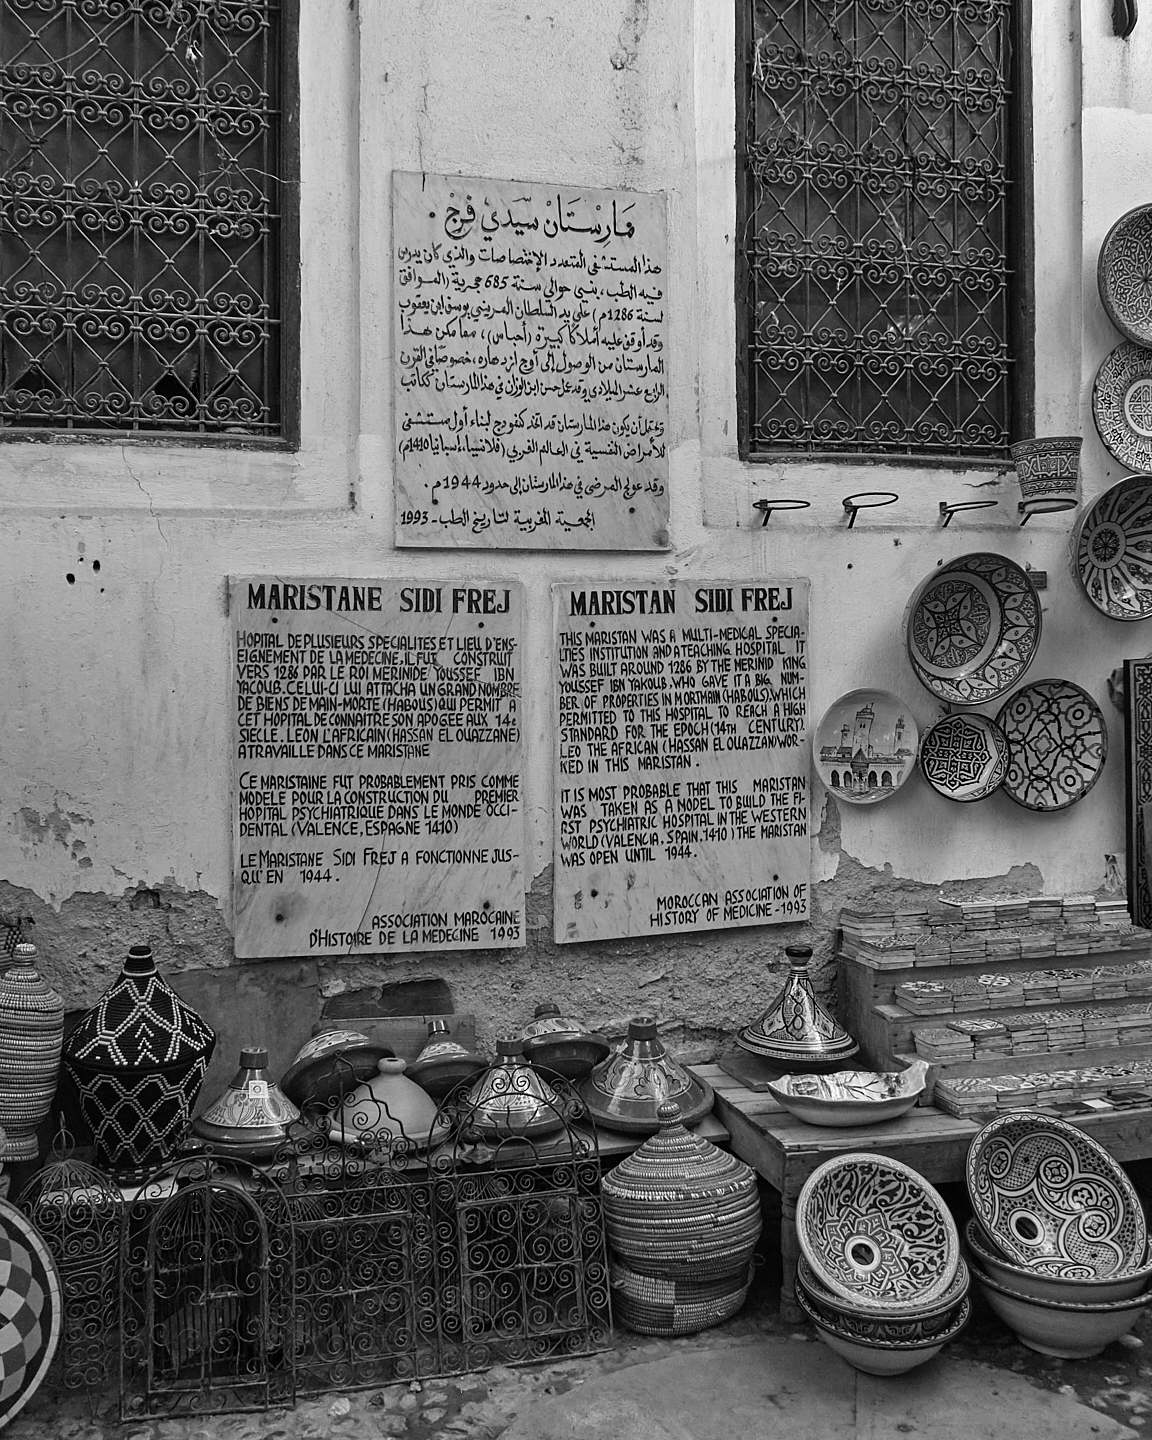 مَارِسْتَانْ سَيِّدي فْرَجْ
هذا المستشفى المتعدد الإختصاصات والذي كان يدرس
فيه الطب، بني حوالي سنة 685 هجرية (الموافق
لسنة 1286م) على يد السلطان المريني يوسف ابن يعقوب
وقد أوقف عليه أملاكا كبيرة (أحباس)، مما مكن هذا
المارستان من الوصول إلى أوج ازدهاره، خصوصا في القرن
الرابع عشر الميلادي وقد عمل حسن ابن الوزان في هذا المارستان ككاتب
ويحتمل أن يكون هذا المارستان قد اتخذ كنموذج لبناء أول مستشفى
للأمراض النفسية في العالم الغربي (فلانسيا، إسبانيا 1410م)
وقد عولج المرضى في هذا المارستان إلى حدود 1944م.
الجمعية المغربية لتاريخ الطب - 1993
MARISTANE SIDI FREJ
HOPITAL DE PLUSIEURS SPECIALITES ET LIEU D'ENS-
EIGNEMENT DE LA MEDECINE, IL FUT CONSTRUIT
VERS 1286 PAR LE ROI MERINIDE YOUSSEF IBN
YACOUB. CELUI-CI LUI ATTACHA UN GRAND NOMBRE
DE BIENS DE MAIN-MORTE (HABOUS) QUI PERMIT A
CET HOPITAL DE CONNAITRE SON APOGEE AUX 14e
SIECLE. LEON L'AFRICAIN (HASSAN EL OUAZZANE)
A TRAVAILLE DANS CE MARISTANE
CE MARISTAINE FUT PROBABLEMENT PRIS COMME
MODELE POUR LA CONSTRUCTION DU PREMIER
HOPITAL PSYCHIATRIQUE DANS LE MONDE OCCI-
DENTAL (VALENCE, ESPAGNE 1410)
LE MARISTANE SIDI FREJ A FONCTIONNE JUS-
QU'EN 1944.
ASSOCIATION MAROCAINE
D'HISTOIRE DE LA MEDECINE 1993
MARISTAN SIDI FREJ
THIS MARISTAN WAS A MULTI-MEDICAL SPECIA-
LTIES INSTITUTION AND A TEACHING HOSPITAL IT
WAS BUILT AROUND 1286 BY THE MERINID KING
YOUSSEF IBN YAKOUB, WHO GAVE IT A BIG NUM-
BER OF PROPERTIES IN MORTMAIN (HABOUS), WHICH
PERMITTED TO THIS HOSPITAL TO REACH A HIGH
STANDARD FOR THE EPOCH (14TH CENTURY).
LEO THE AFRICAN (HASSAN EL OUAZZAN) WOR-
KED IN THIS MARISTAN.
IT IS MOST PROBABLE THAT THIS MARISTAN
WAS TAKEN AS A MODEL TO BUILD THE FI-
RST PSYCHIATRIC HOSPITAL IN THE WESTERN
WORLD (VALENCIA, SPAIN. 1410) THE MARISTAN
WAS OPEN UNTIL 1944.
MOROCCAN ASSOCIATION OF
HISTORY OF MEDICINE - 1993